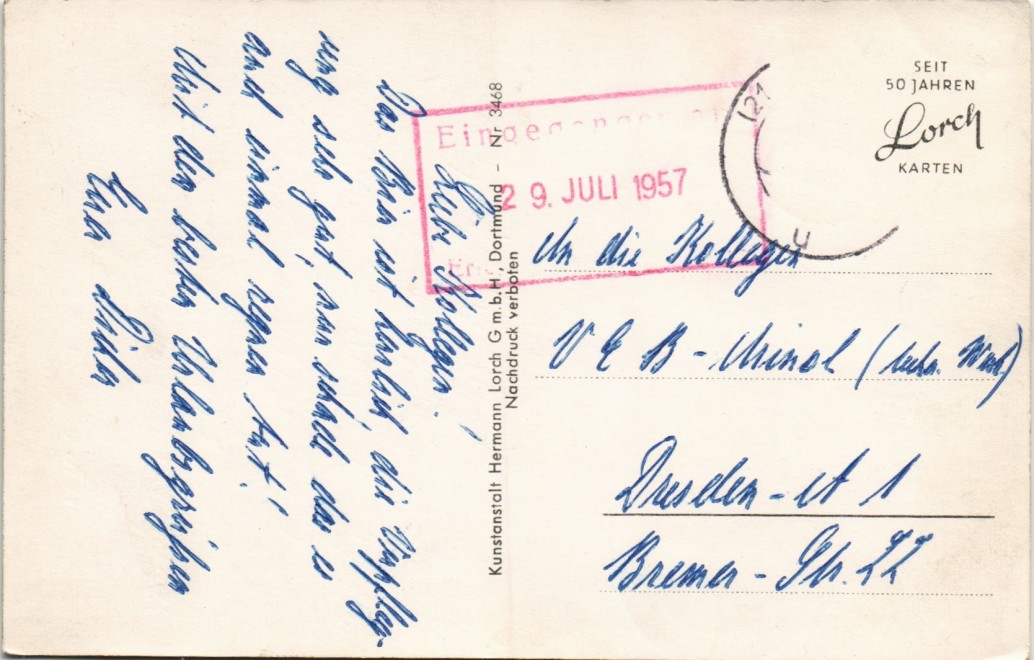 Liebe Kollegen!
Das Bier ist herrlich, die Verpfleg-
ung sehr gut, nur schade das es
auch einmal regnen tut!
Mit den besten Urlaubsgrüssen
Euer Dieter
Kunstanstalt Hermann Lorch G.m.b.H., Dortmund - Nr 3468
Nachdruck verboten
Eingegangen
29. JULI 1957
(21
u
SEIT
50 JAHREN
Lorch
KARTEN
An die Kollegen
VEB - Minol (techn.
Dresden - A 1
Bremer - Str. 22